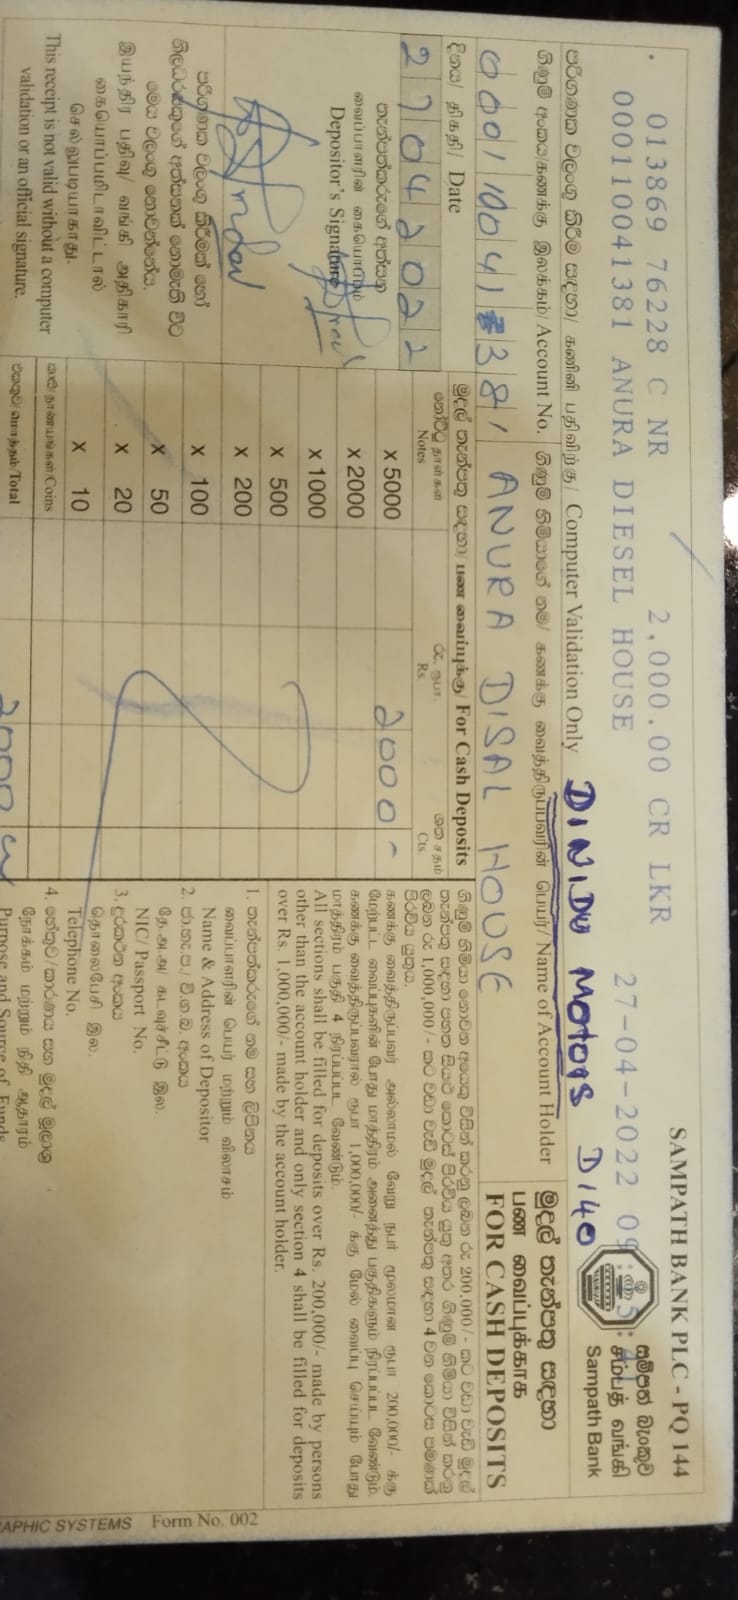 SAMPATH BANK PLC - PQ 144
013869 76228 C NR 2,000.00 CR LKR 27-04-2022
000110041381 ANURA DIESEL HOUSE
පරිගණක වලංගු කිරීම සඳහා/ கணினி பதிவிற்கு/ Computer Validation Only
DINIDU MOTORS D140
සම්පත් බැංකුව
சம்பத் வங்கி
Sampath Bank
ගිණුම් අංකය/கணக்கு இலக்கம்/Account No.
ගිණුම් හිමියාගේ නම/ கணக்கு வைத்திருப்பவரின் பெயர்/ Name of Account Holder
ANURA DISAL HOUSE
මුදල් තැන්පතු සඳහා
பண வைப்புக்காக
FOR CASH DEPOSITS
දිනය/ திகதி/ Date
27042022
මුදල් තැන්පතු සඳහා/ பண வைப்புக்கு/ For Cash Deposits
නෝට්ටු தாள்கள்
Notes
රු. ரூபா.
Rs.
ශත சதம்
Cts.
x 5000 2000 -
x 2000
x 1000
x 500
x 200
x 100
x 50
x 20
x 10
කාසි நாணயங்கள்/Coins
එකතුව/மொத்தம்/Total 2000
තැන්පත්කරුගේ අත්සන
வைப்பாளரின் கையொப்பம்
Depositor's Signature
පරිගණක වලංගු කිරීමක් හෝ
නිලධාරියකුගේ අත්සනක් නොමැති විට
මෙය වලංගු නොවන්නේය.
இயந்திர பதிவு/ வங்கி அதிகாரி
கையொப்பமிடாவிட்டால்
செல்லுபடியாகாது.
This receipt is not valid without a computer
validation or an official signature.
ගිණුම් හිමියා නොවන අයෙකු විසින් කරනු ලබන රු 200,000/- කට වඩා වැඩි මුදල්
තැන්පතු සඳහා පහත සියළු කොටස් පිරවිය යුතු අතර ගිණුම් හිමියා විසින් කරනු
ලබන රු 1,000,000/- කට වඩා වැඩි මුදල් තැන්පතු සඳහා 4 වන කොටස පමණක්
පිරවිය යුතුය.
கணக்கு வைத்திருப்பவர் அல்லாமல் வேறு நபர் மூலமான ரூபா 200,000/- க்கு
மேற்பட்ட வைப்புகளின் போது மாத்திரம் அனைத்து பகுதிகளும் நிரப்பப்பட வேண்டும்.
கணக்கு வைத்திருப்பவரால் ரூபா 1,000,000/- க்கு மேல் வைப்பு செய்யும் போது
மாத்திரம் பகுதி 4 நிரப்பப்பட வேண்டும்.
All sections shall be filled for deposits over Rs. 200,000/- made by persons
other than the account holder and only section 4 shall be filled for deposits
over Rs. 1,000,000/- made by the account holder.
1. තැන්පත්කරුගේ නම සහ ලිපිනය
வைப்பாளரின் பெயர் மற்றும் விலாசம்
Name & Address of Depositor
2. ජා.හැ.ප./ වි.ග.බ. අංකය
தே.அ.அ/ கடவுச்சீட்டு இல.
NIC/ Passport No.
3. දුරකථන අංකය
தொலைபேசி இல.
Telephone No.
4. හේතුව/කාරණය සහ මුදල් මූලාශ්‍ර
நோக்கம் மற்றும் நிதி ஆதாரம்
Purpose and Source of Funds
APHIC SYSTEMS Form No. 002